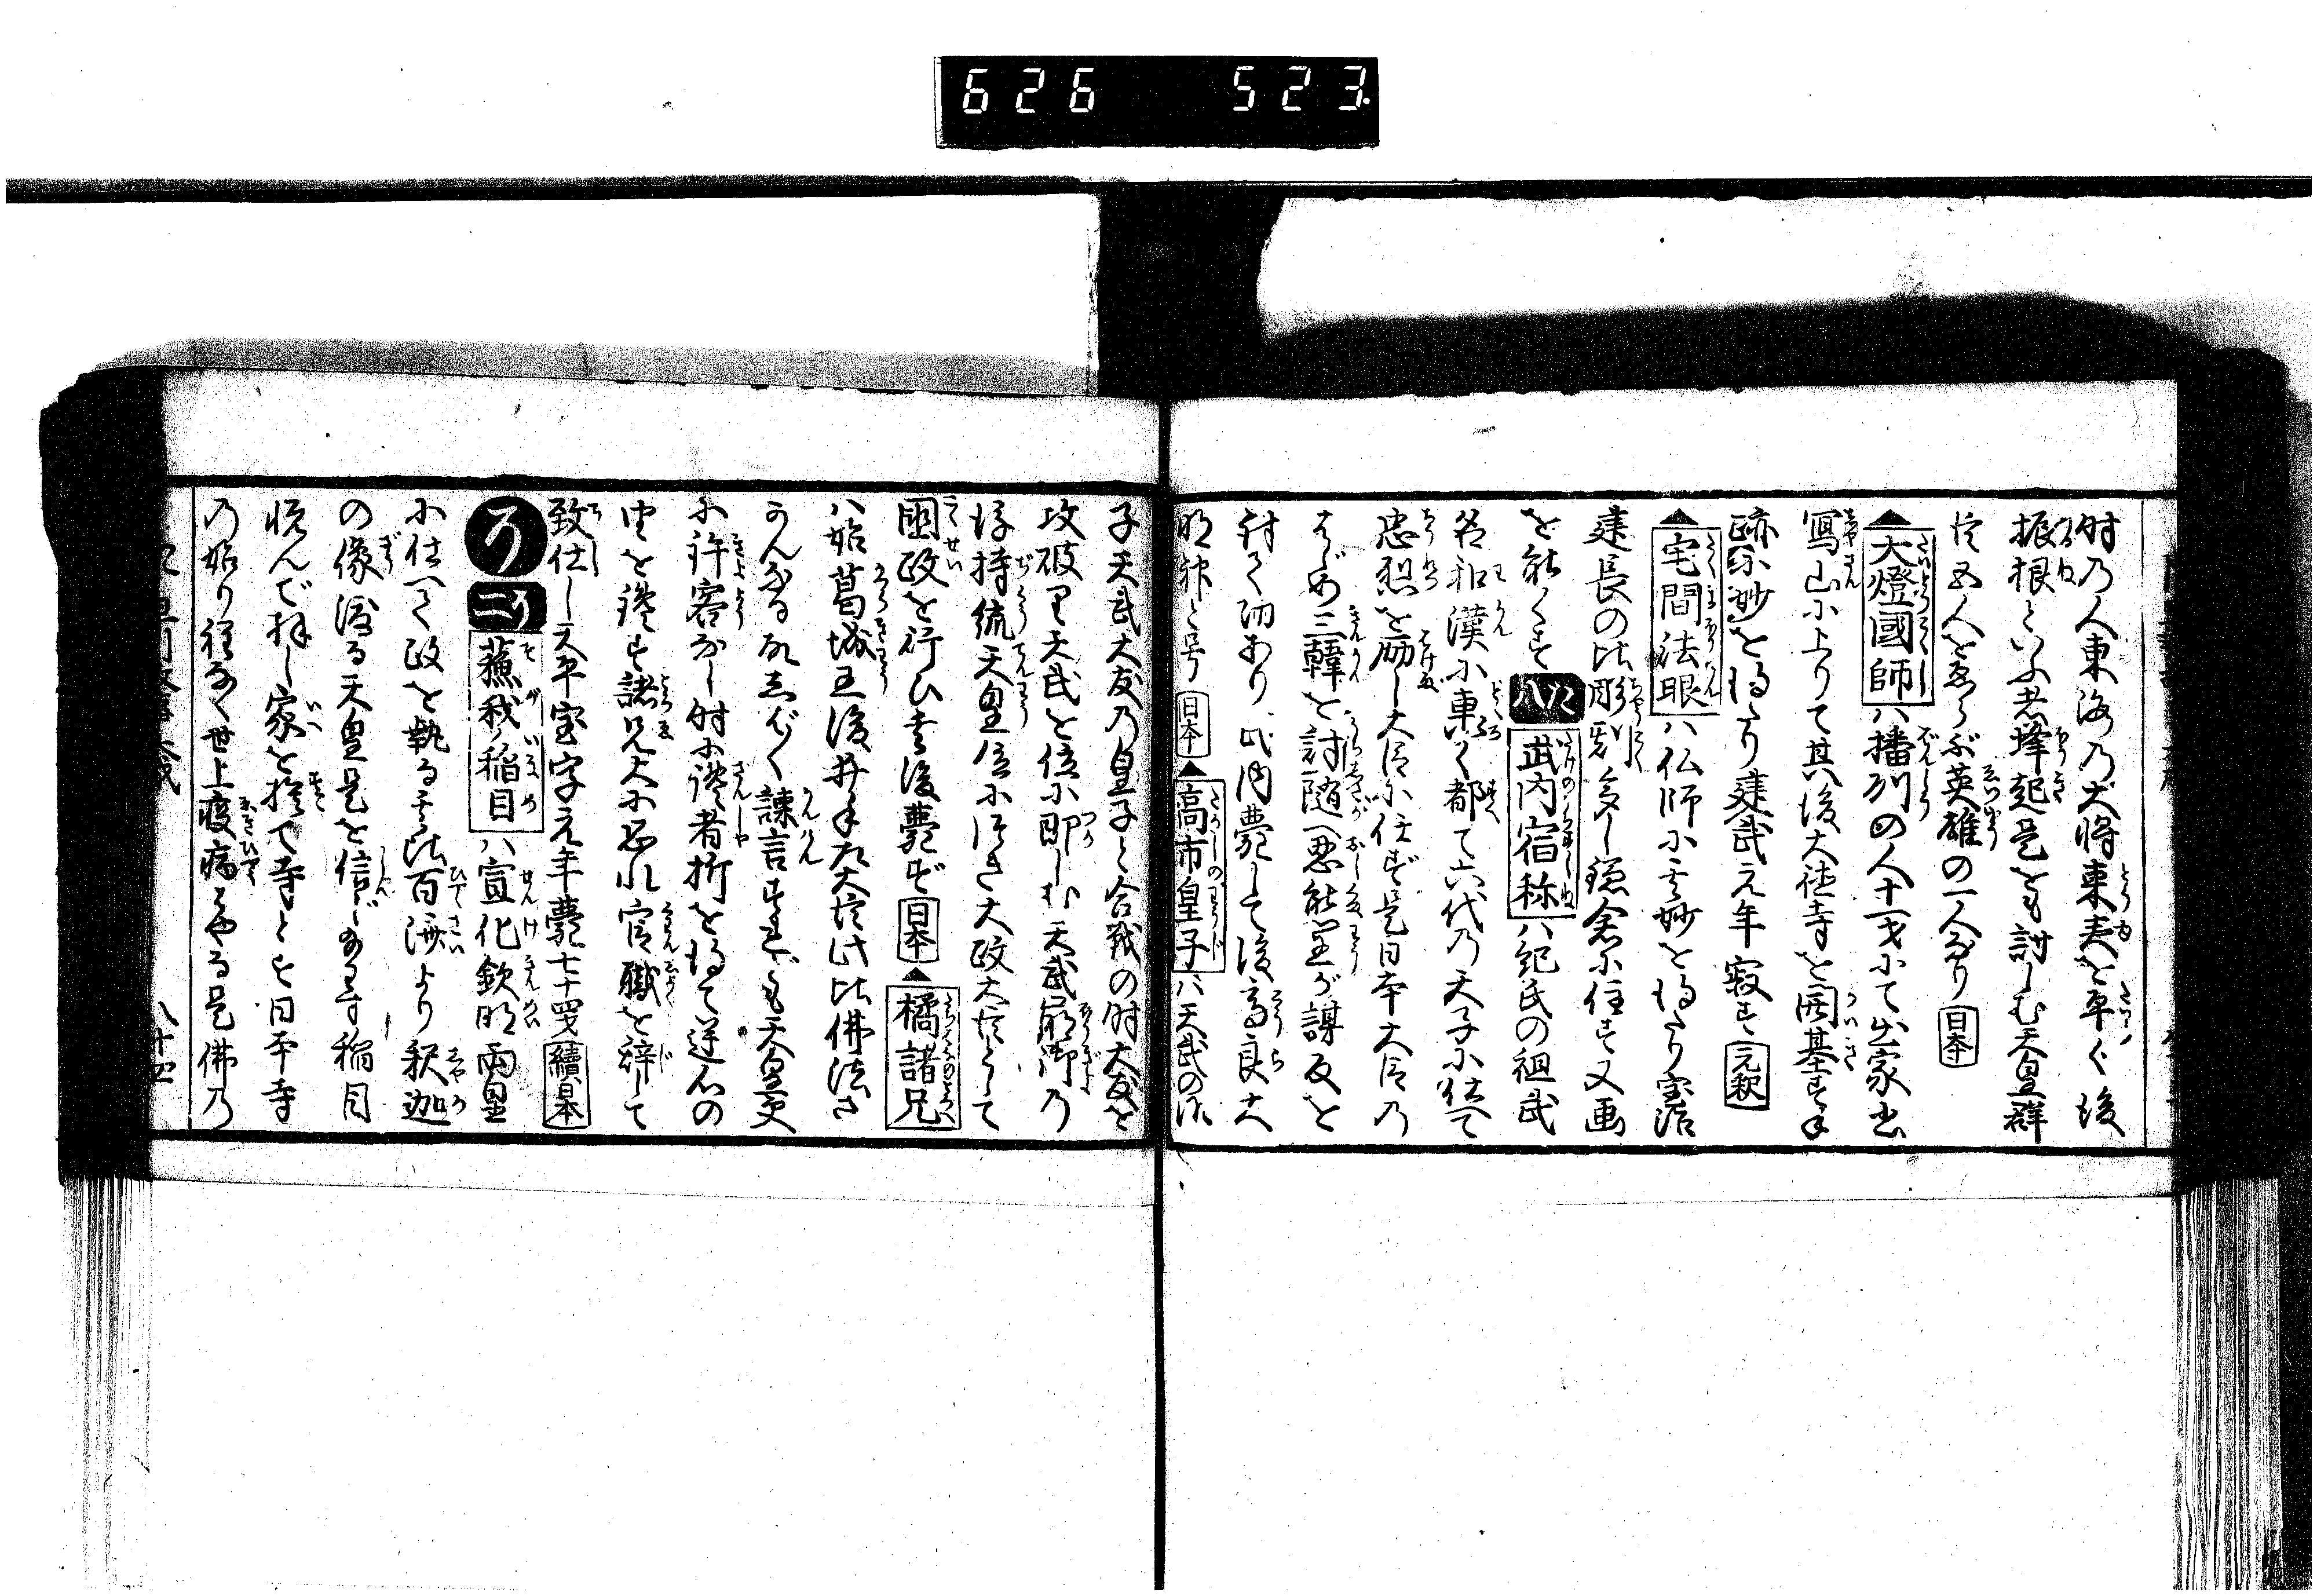 626 523
時の人東海の大將東夷を平ぐ後
振根といふ者蜂起是をも討しむ天皇群
臣五人をゑらぶ英雄の一人なり 日本
▲大燈國師ハ播州の人十一才にて出家書
寫山に上りて其後大徳寺を開基す手
跡の妙を得たり建武元年寂す 元釈
▲宅間法眼ハ仏師に其妙を得たり宝治
建長の比彫刻多し鎌倉に住す又画
を能くす 八た 武内宿祢ハ紀氏の祖武
名和漢に轟く都て六代の天子に仕て
忠烈を励し大臣に任ず是日本大臣の
はじめ三韓を討随へ忍熊王が謀反を
討て功あり此月薨して後高良大
明神と号 日本 ▲高市皇子ハ天武の御
子天武大友の皇子と合戦の時大友を
攻破り天武を位に即しむ天武崩御の
後持統天皇位につき大政大臣として
國政を行ひ其後薨ず 日本 ▲橘諸兄
ハ始葛城王後井手左大臣此比佛法さ
かんなる故しばしば諫言すれども天皇更
に許容なし時に讒者折を得て逆心の
由を讒す諸兄大に恐れ官職を辞して
致仕し天平宝字元年薨七十四 續日本
そ 二り 蘓我ノ稲目ハ宣化欽明両皇
に仕へて政を執る其比百済より釈迦
の像渡る天皇是を信じ給はず稲目
悦んで拝し家を捨て寺とす日本寺
の始り程なく世上疫病はやる是佛の